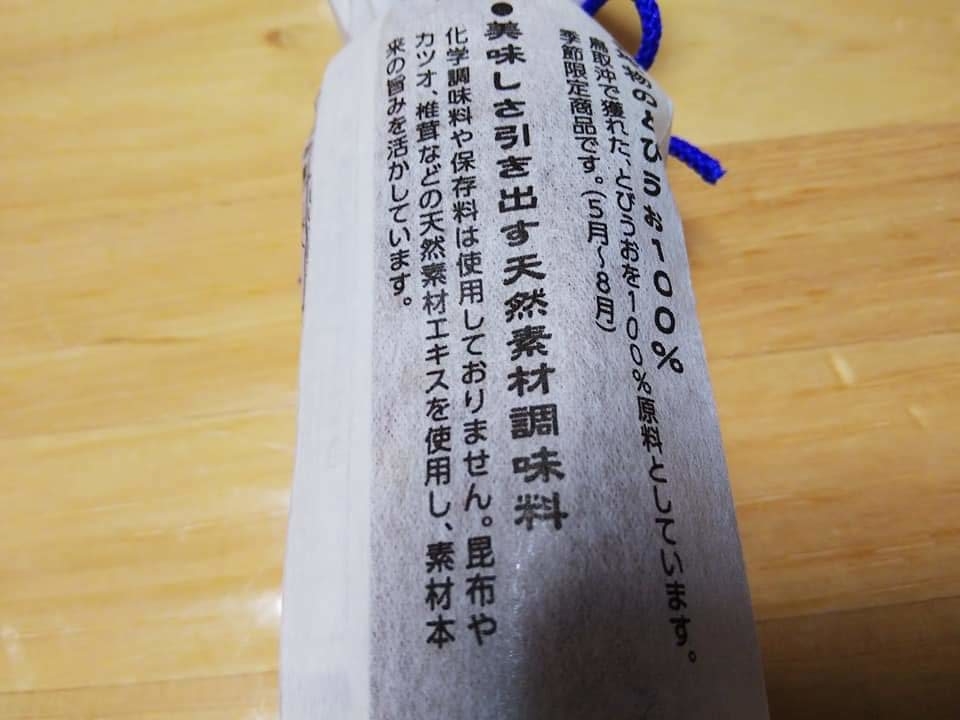 物のとびうお100%
鳥取沖で獲れた、とびうおを100%原料としています。
季節限定商品です。(5月~8月)
●美味しさ引き出す天然素材調味料
化学調味料や保存料は使用しておりません。昆布や
カツオ、椎茸などの天然素材エキスを使用し、素材本
来の旨みを活かしています。